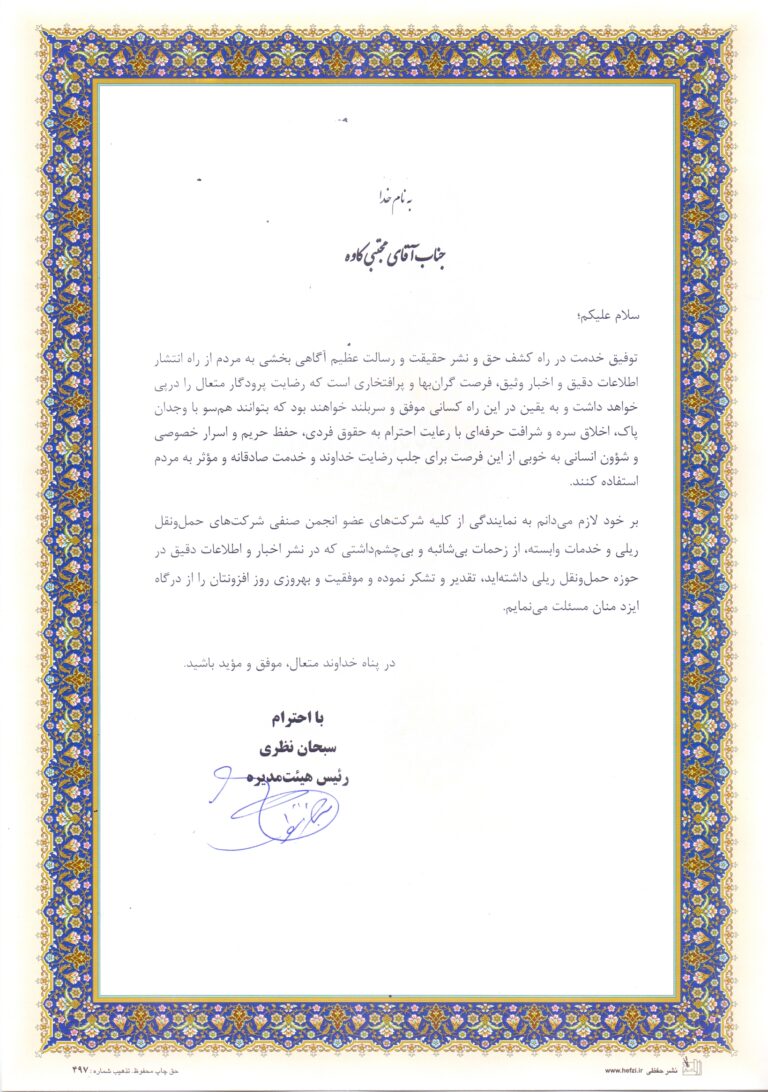 به نام خدا
جناب آقای مجتبی کاوه
سلام علیکم؛
توفیق خدمت در راه کشف حق و نشر حقیقت و رسالت عظیم آگاهی بخشی به مردم از راه انتشار
اطلاعات دقیق و اخبار وثیق، فرصت گران‌بها و پرافتخاری است که رضایت پرودگار متعال را درپی
خواهد داشت و به یقین در این راه کسانی موفق و سربلند خواهند بود که بتوانند هم‌سو با وجدان
پاک، اخلاق سره و شرافت حرفه‌ای با رعایت احترام به حقوق فردی، حفظ حریم و اسرار خصوصی
و شؤون انسانی به خوبی از این فرصت برای جلب رضایت خداوند و خدمت صادقانه و مؤثر به مردم
استفاده کنند.
بر خود لازم می‌دانم به نمایندگی از کلیه شرکت‌های عضو انجمن صنفی شرکت‌های حمل‌ونقل
ریلی و خدمات وابسته، از زحمات بی‌شائبه و بی‌چشم‌داشتی که در نشر اخبار و اطلاعات دقیق در
حوزه حمل‌ونقل ریلی داشته‌اید، تقدیر و تشکر نموده و موفقیت و بهروزی روز افزونتان را از درگاه
ایزد منان مسئلت می‌نمایم.
در پناه خداوند متعال، موفق و مؤید باشید.
با احترام
سبحان نظری
رئیس هیئت‌مدیره
نشر حفظی www.hefzi.ir
حق چاپ محفوظ. تذهیب شماره: ۴۹۷